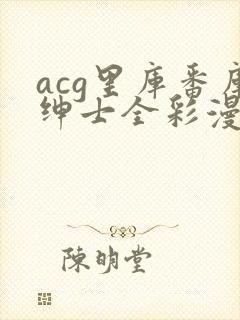 acg里库番库
绅士全彩漫
陳明堂